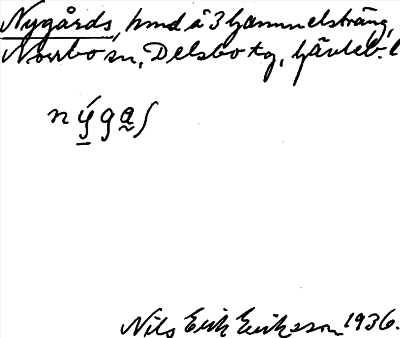 Nygårds, hmd å 3 Gammelsträng,
Norrbo sn, Delsbo tg, Gävleb. l
nýgas
Nils Erik Eriksson 1936.